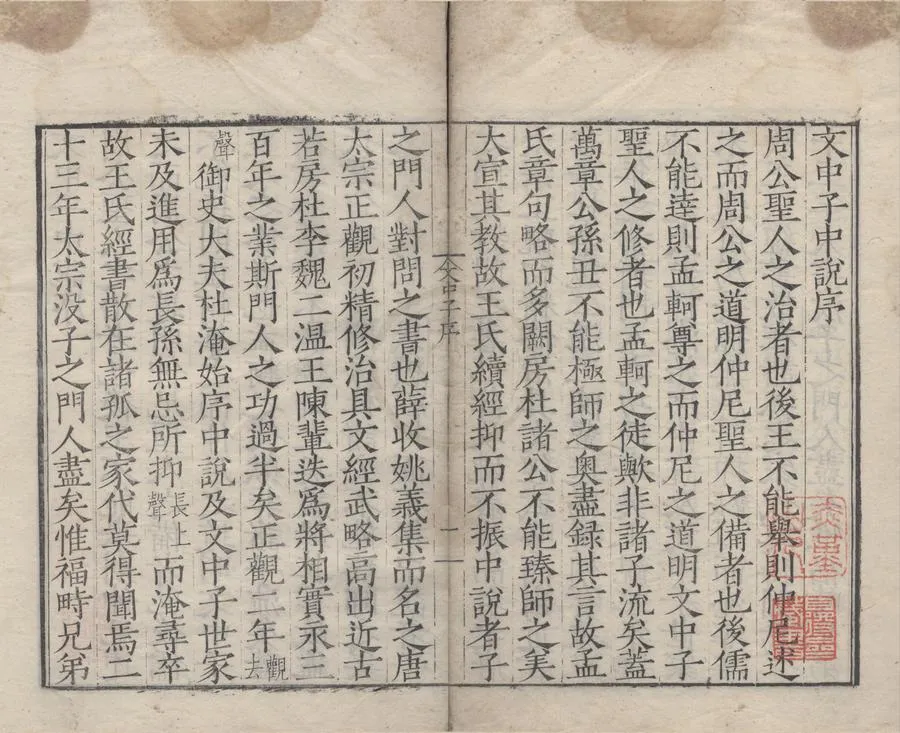 文中子中說序
周公聖人之治者也後王不能舉則仲尼述
之而周公之道明仲尼聖人之備者也後儒
不能逹則孟軻尊之而仲尼之道明文中子
聖人之修者也孟軻之徒歟非諸子流矣蓋
萬章公孫丑不能極師之奧盡録其言故孟
氏章句略而多闕房杜諸公不能臻師之美
大宣其教故王氏續經抑而不振中說者子
文中子序
一
之門人對問之書也薛收姚義集而名之唐
太宗正觀初精修治具文經武略高出近古
若房杜李魏二温王陳輩迭爲將相實永三
百年之業斯門人之功過半矣正觀二年觀去
聲御史大夫杜淹始序中說及文中子世家
未及進用爲長孫無忌所抑長上聲而淹尋卒
故王氏經書散在諸孤之家代莫得聞焉二
十三年太宗没子之門人盡矣惟福畤兄弟